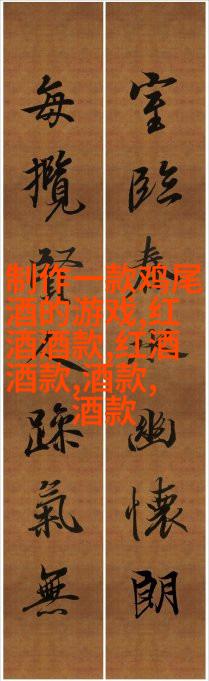 室臨春幽懷朗
每攬賢人躁氣無
制作一款鸡尾
酒的游戏,红
酒酒款,红酒
酒款,酒款,
酒款